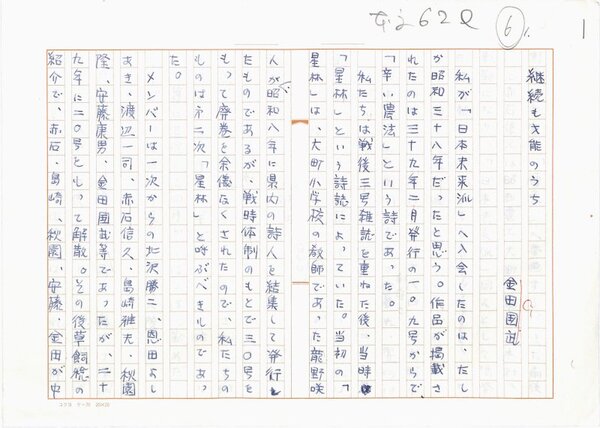 本文62Q
6
1
継続も才能のうち
金田国武
私が「日本未来派」へ入会したのは、たし
か昭和三十八年だったと思う。作品が掲載さ
れたのは三十九年二月発行の一〇九号からで
「辛い農法」という詩であった。
私たちは戦後三号雑誌を重ねた後、当時
「星林」という詩誌によっていた。当初の「
星林」は、大町小学校の教師であった龍野咲
人が昭和八年に県内の詩人を結集して発行し
たものであるが、戦時体制のもとで三〇号を
もって廃巻を余儀なくされたので、私たちの
ものは第二次「星林」と呼ぶべきものであっ
た。
メンバーは一次からの北沢勝二、恩田よし
あき、渡辺一司、赤石信久、島崎雅夫、秋園
隆、安藤康男、金田国武等であったが、二十
九年に二〇号をもって解散。その後草飼稔の
紹介で、赤石、島崎、秋園、安藤、金田が中
コクヨ ケ-20 20×20